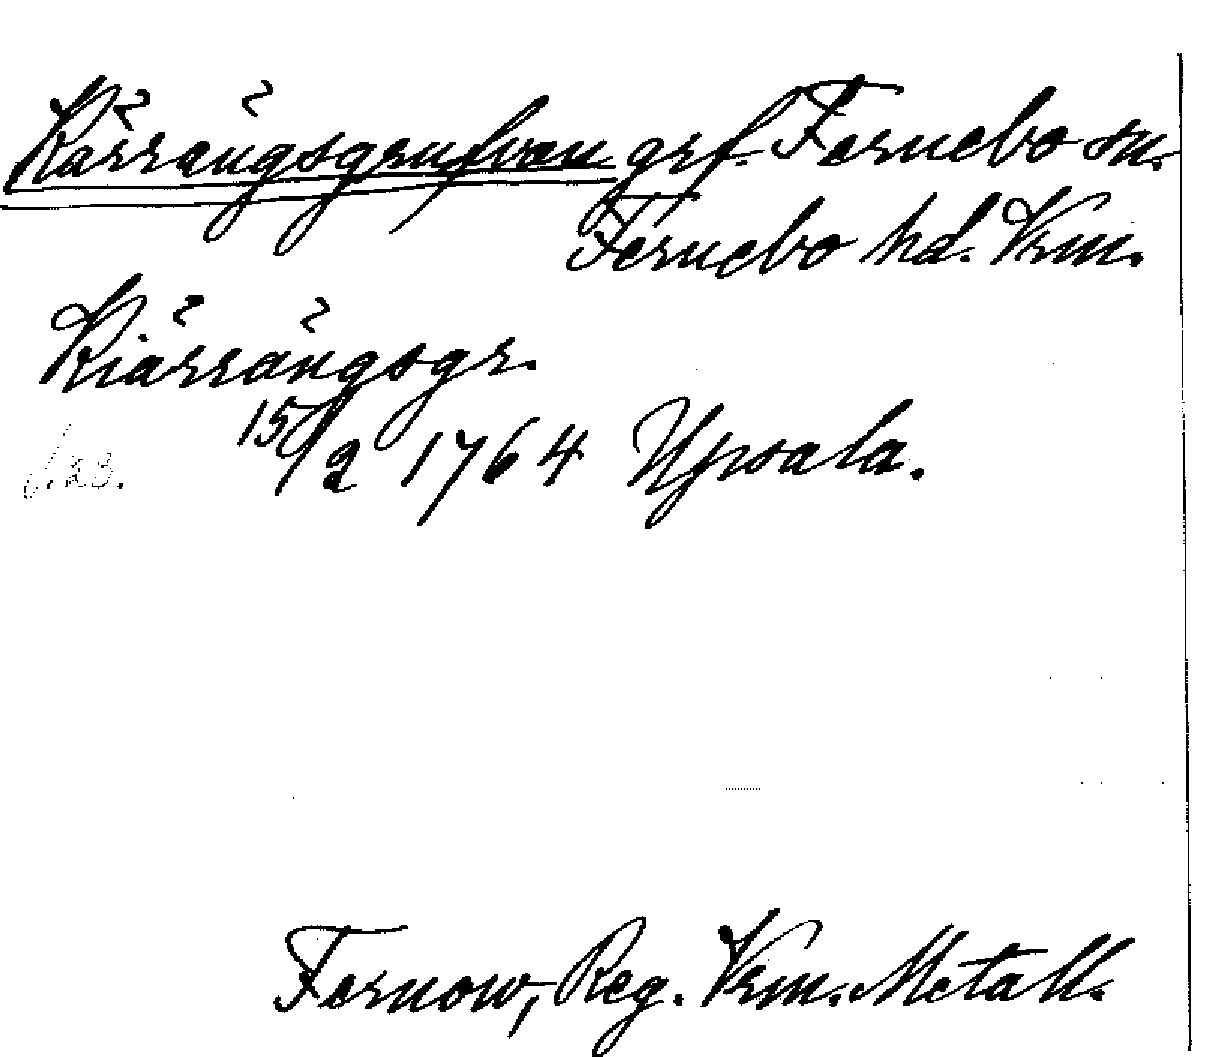 Kärrängsgrufvan grf. Fernebo sn.
Fernebo hd. Vrm.
Kiärrängsgr.
15/2 1764 Upsala.
Fernow, Reg. Vrm. Metall.